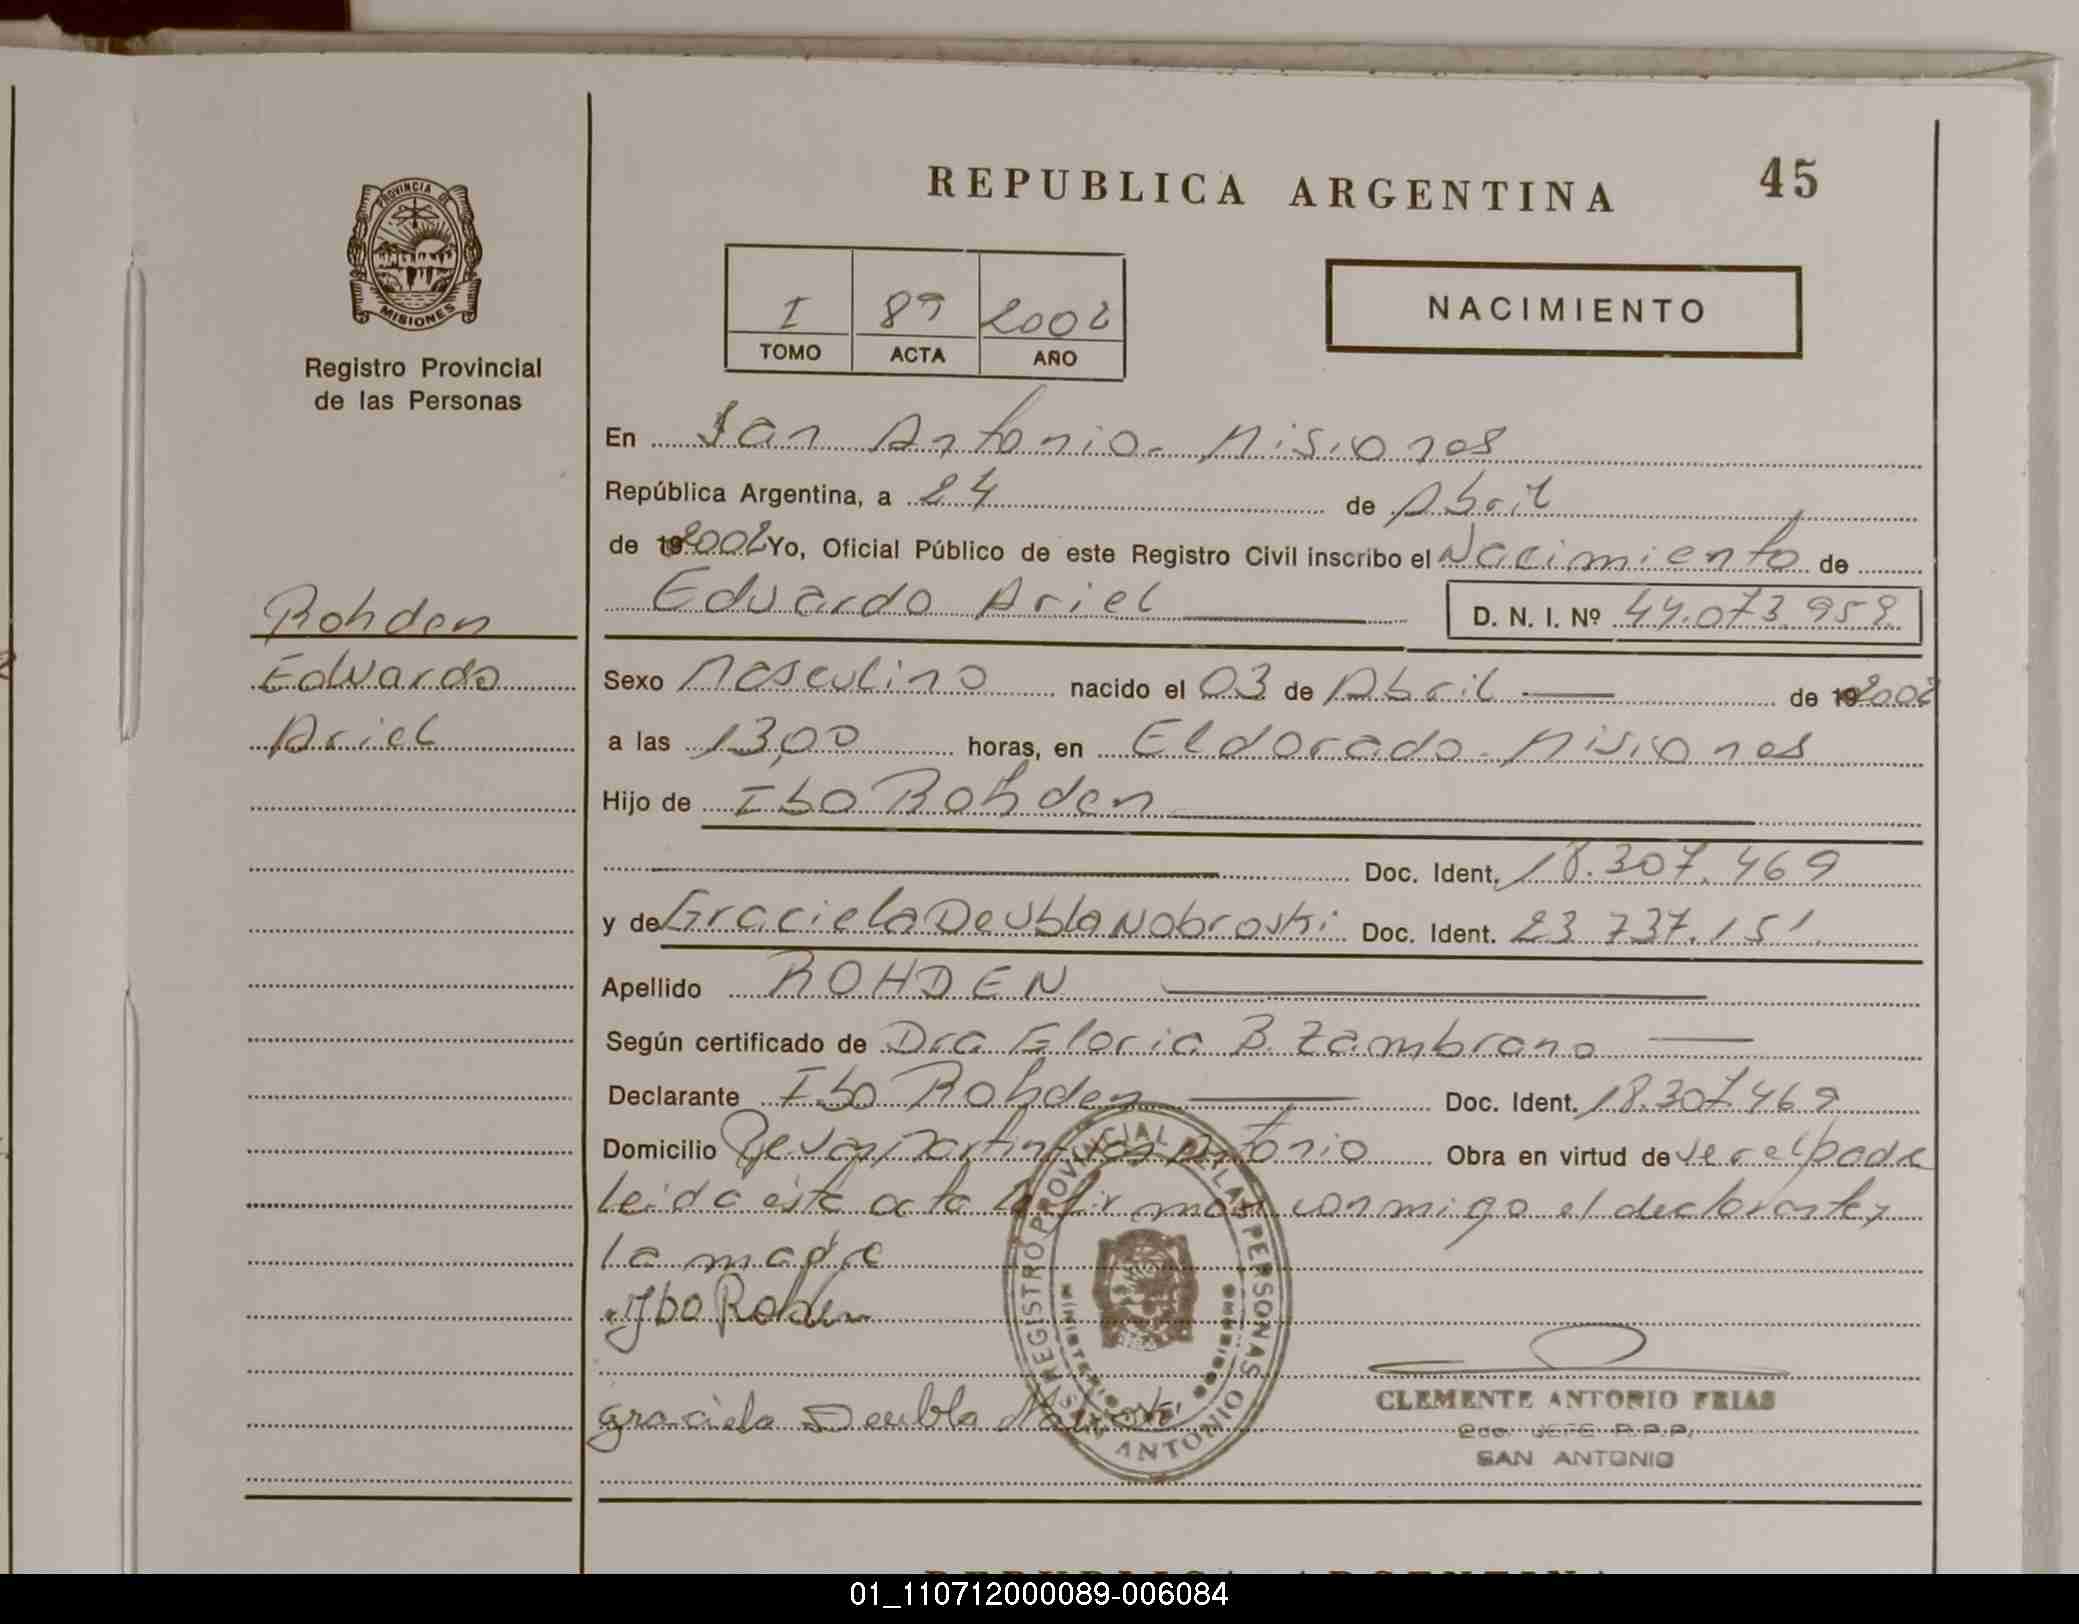 REPUBLICA ARGENTINA
45
PROVINCIA DE
MISIONES
Registro Provincial
de las Personas
I 89 2002
TOMO ACTA AÑO
NACIMIENTO
En San Antonio - Misiones
República Argentina, a 24 de Abril
de 19 2002 Yo, Oficial Público de este Registro Civil inscribo el Nacimiento de
Eduardo Ariel D. N. I. Nº 44.073.959
Rohden
Eduardo
Ariel
Sexo Masculino nacido el 03 de Abril de 19 2002
a las 13,00 horas, en Eldorado - Misiones
Hijo de Ibo Rohden
Doc. Ident. 18.307.469
y de Graciela Deubla Nobroski Doc. Ident. 23.737.151
Apellido ROHDEN
Según certificado de Dra Gloria B. Zambrano
Declarante Ibo Rohden Doc. Ident. 18.307.469
Domicilio Antonio Obra en virtud de ser el padre
Leida esta acta la firman conmigo el declarante y
la madre
Ibo Rohden
Graciela Deubla
REGISTRO PROVINCIAL DE LAS PERSONAS
SAN ANTONIO
CLEMENTE ANTONIO FRIAS
2do. JEFE R.P.P.
SAN ANTONIO
REPUBLICA ARGENTINA
01_110712000089-006084